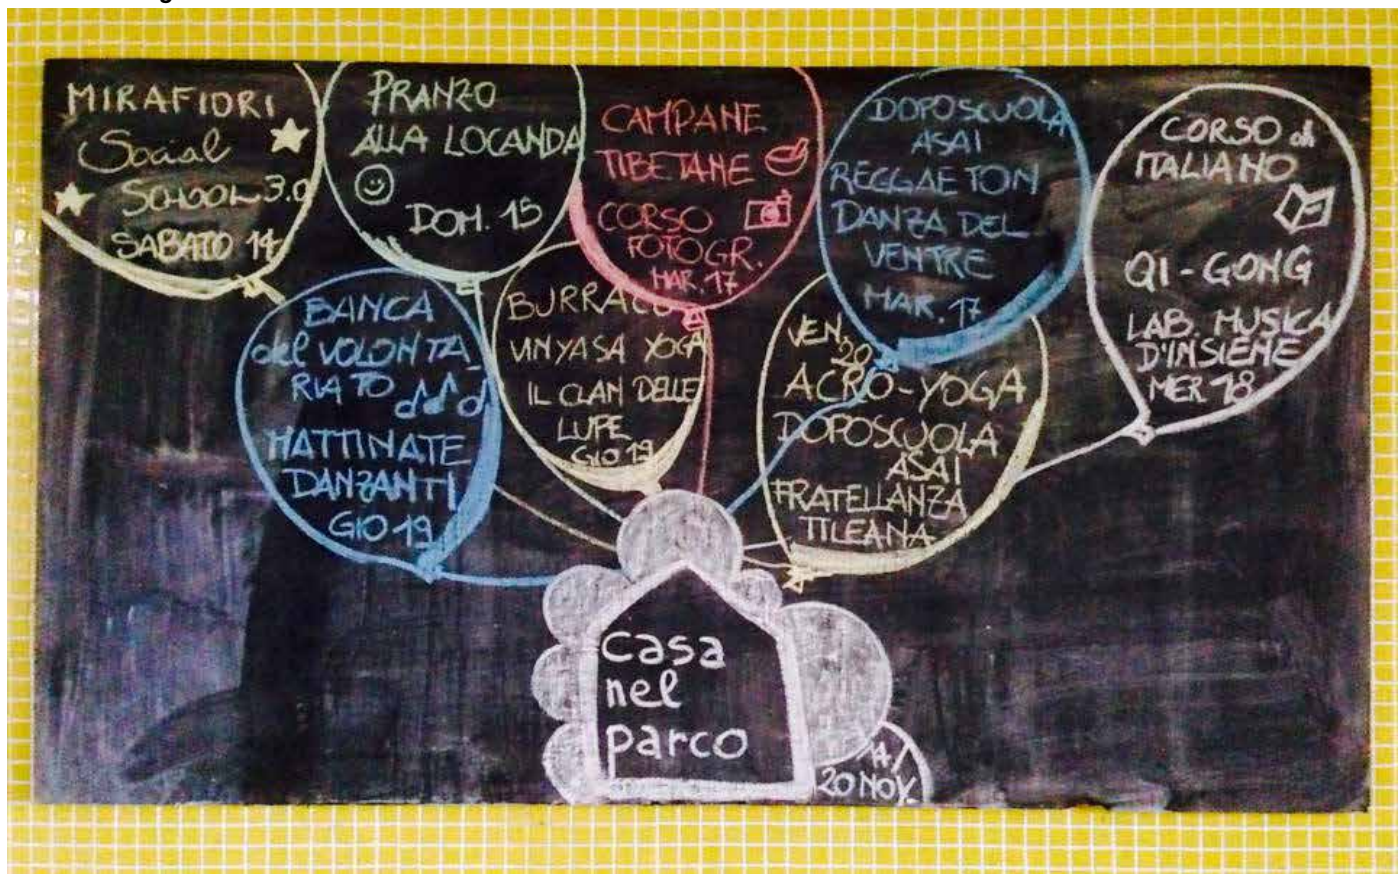 MIRAFIORI
Social
SCHOOL 3.0
SABATO 14
PRANZO
ALLA LOCANDA
DOM. 15
CAMPANE
TIBETANE
CORSO
FOTOGR.
MAR. 17
DOPOSCUOLA
ASAI
REGGAETON
DANZA DEL
VENTRE
MAR. 17
CORSO di
ITALIANO
QI-GONG
LAB. MUSICA
D'INSIEME
MER 18
BANCA
del VOLONTA_
RIATO
MATTINATE
DANZANTI
GIO 19
BURRACO
VINYASA YOGA
IL CLAN DELLE
LUPE
GIO 19
VEN.
20
ACRO-YOGA
DOPOSCUOLA
ASAI
FRATELLANZA
TILEANA
casa
nel
parco
20 NOV.